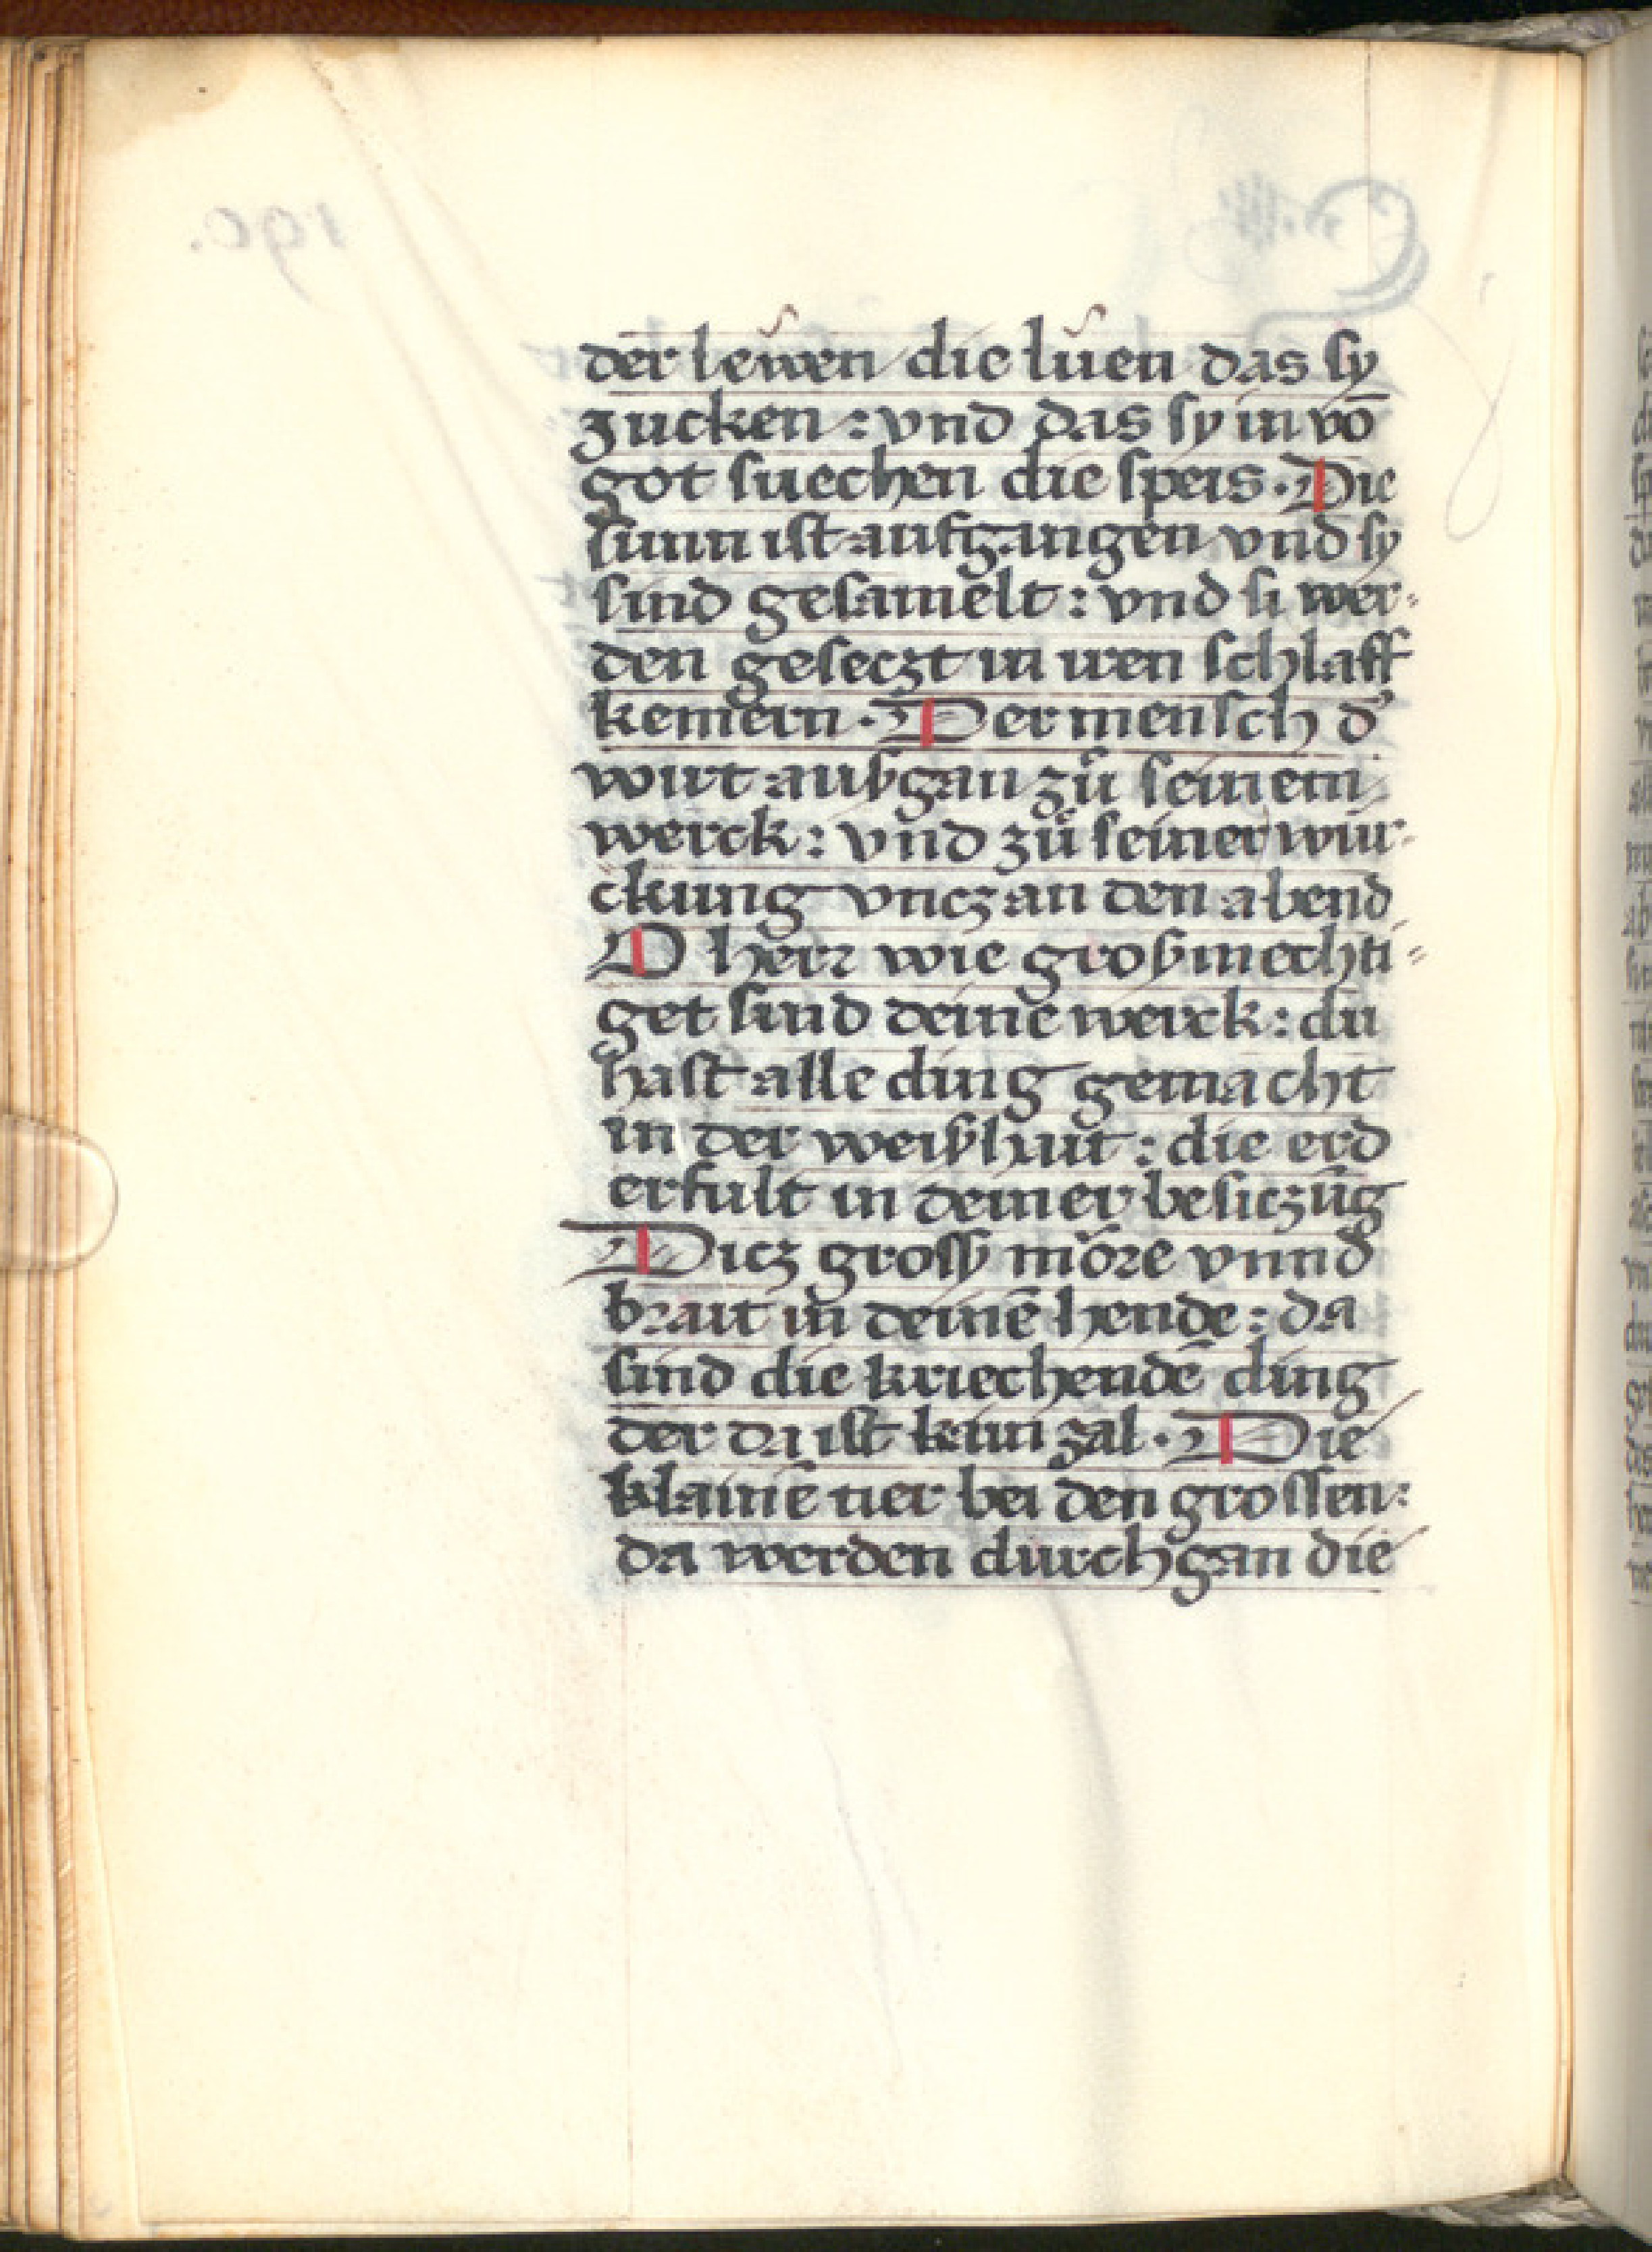 der lewen die lüen das sy
zucken : vnd das sy in vō
got suechen die speis · Die
sunn ist aufgangen vnd sy
sind gesamelt : vnd si wer-
den geseczt in iren schlaff
kemern · Der mensch d'
wirt ausgan zů seinem
werck : vnd zů seiner wür-
ckung vncz an den abend
O herr wie grosmechti-
get sind deine werck : du
hast alle ding gemacht
in der weishait : die erd
erfült in deiner besiczūg
Dicz gross möre vnnd
brait in deinē hende : da
sind die kriechendē ding
der da ist kein zal · Die
klainē tier bei den grossen :
da werden durchgan die